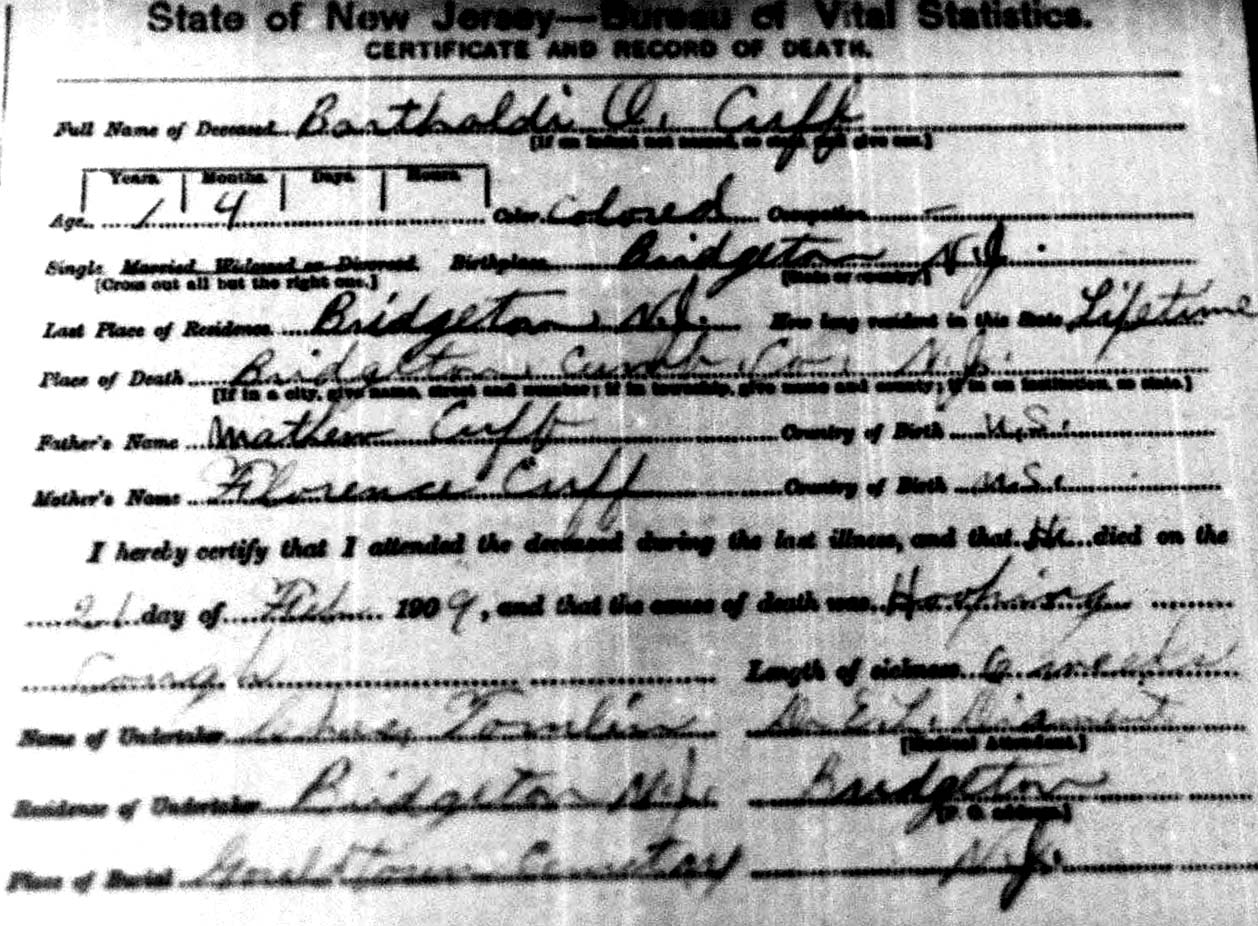 State of New Jersey—Bureau of Vital Statistics.
CERTIFICATE AND RECORD OF DEATH.
Full Name of Deceased Bartholdi O. Cuff
[If an infant not named, so give one.]
Years. Months. Days. Hours.
Age 1 4 Color Colored Occupation -
Single, Married, Widowed or Divorced. Birthplace Bridgeton N.J.
[Cross out all but the right one.] [State or country.]
Last Place of Residence Bridgeton, N.J. How long resident in this State Lifetime
Place of Death Bridgeton, Cumb. Co., N.J.
[If in a city, give name, street and number; if in township, give name and county; if in an institution, so state.]
Father's Name Mathew Cuff Country of Birth U.S.
Mother's Name Florence Cuff Country of Birth U.S.
I hereby certify that I attended the deceased during the last illness, and that He died on the
21 day of Feb 1909, and that the cause of death was Hooping
Cough Length of sickness 6 weeks
Name of Undertaker Tomlin Dr E. L. Diament
[Medical Attendant.]
Residence of Undertaker Bridgeton N.J. Bridgeton
[P. O. address.]
Place of Burial Gouldtown Cemetary N.J.